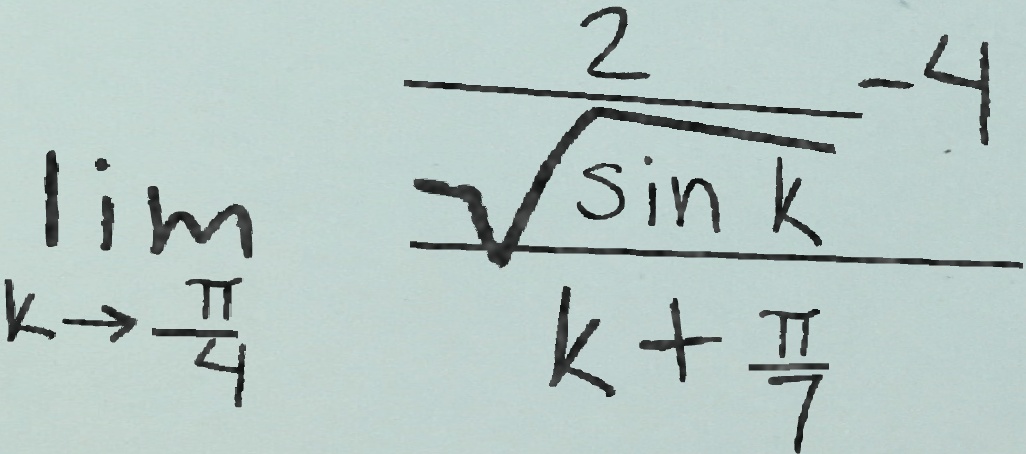 \lim_{k \to \frac{\pi}{4}} \frac{\frac{2}{\sqrt{\sin k}} - 4}{k + \frac{\pi}{7}}